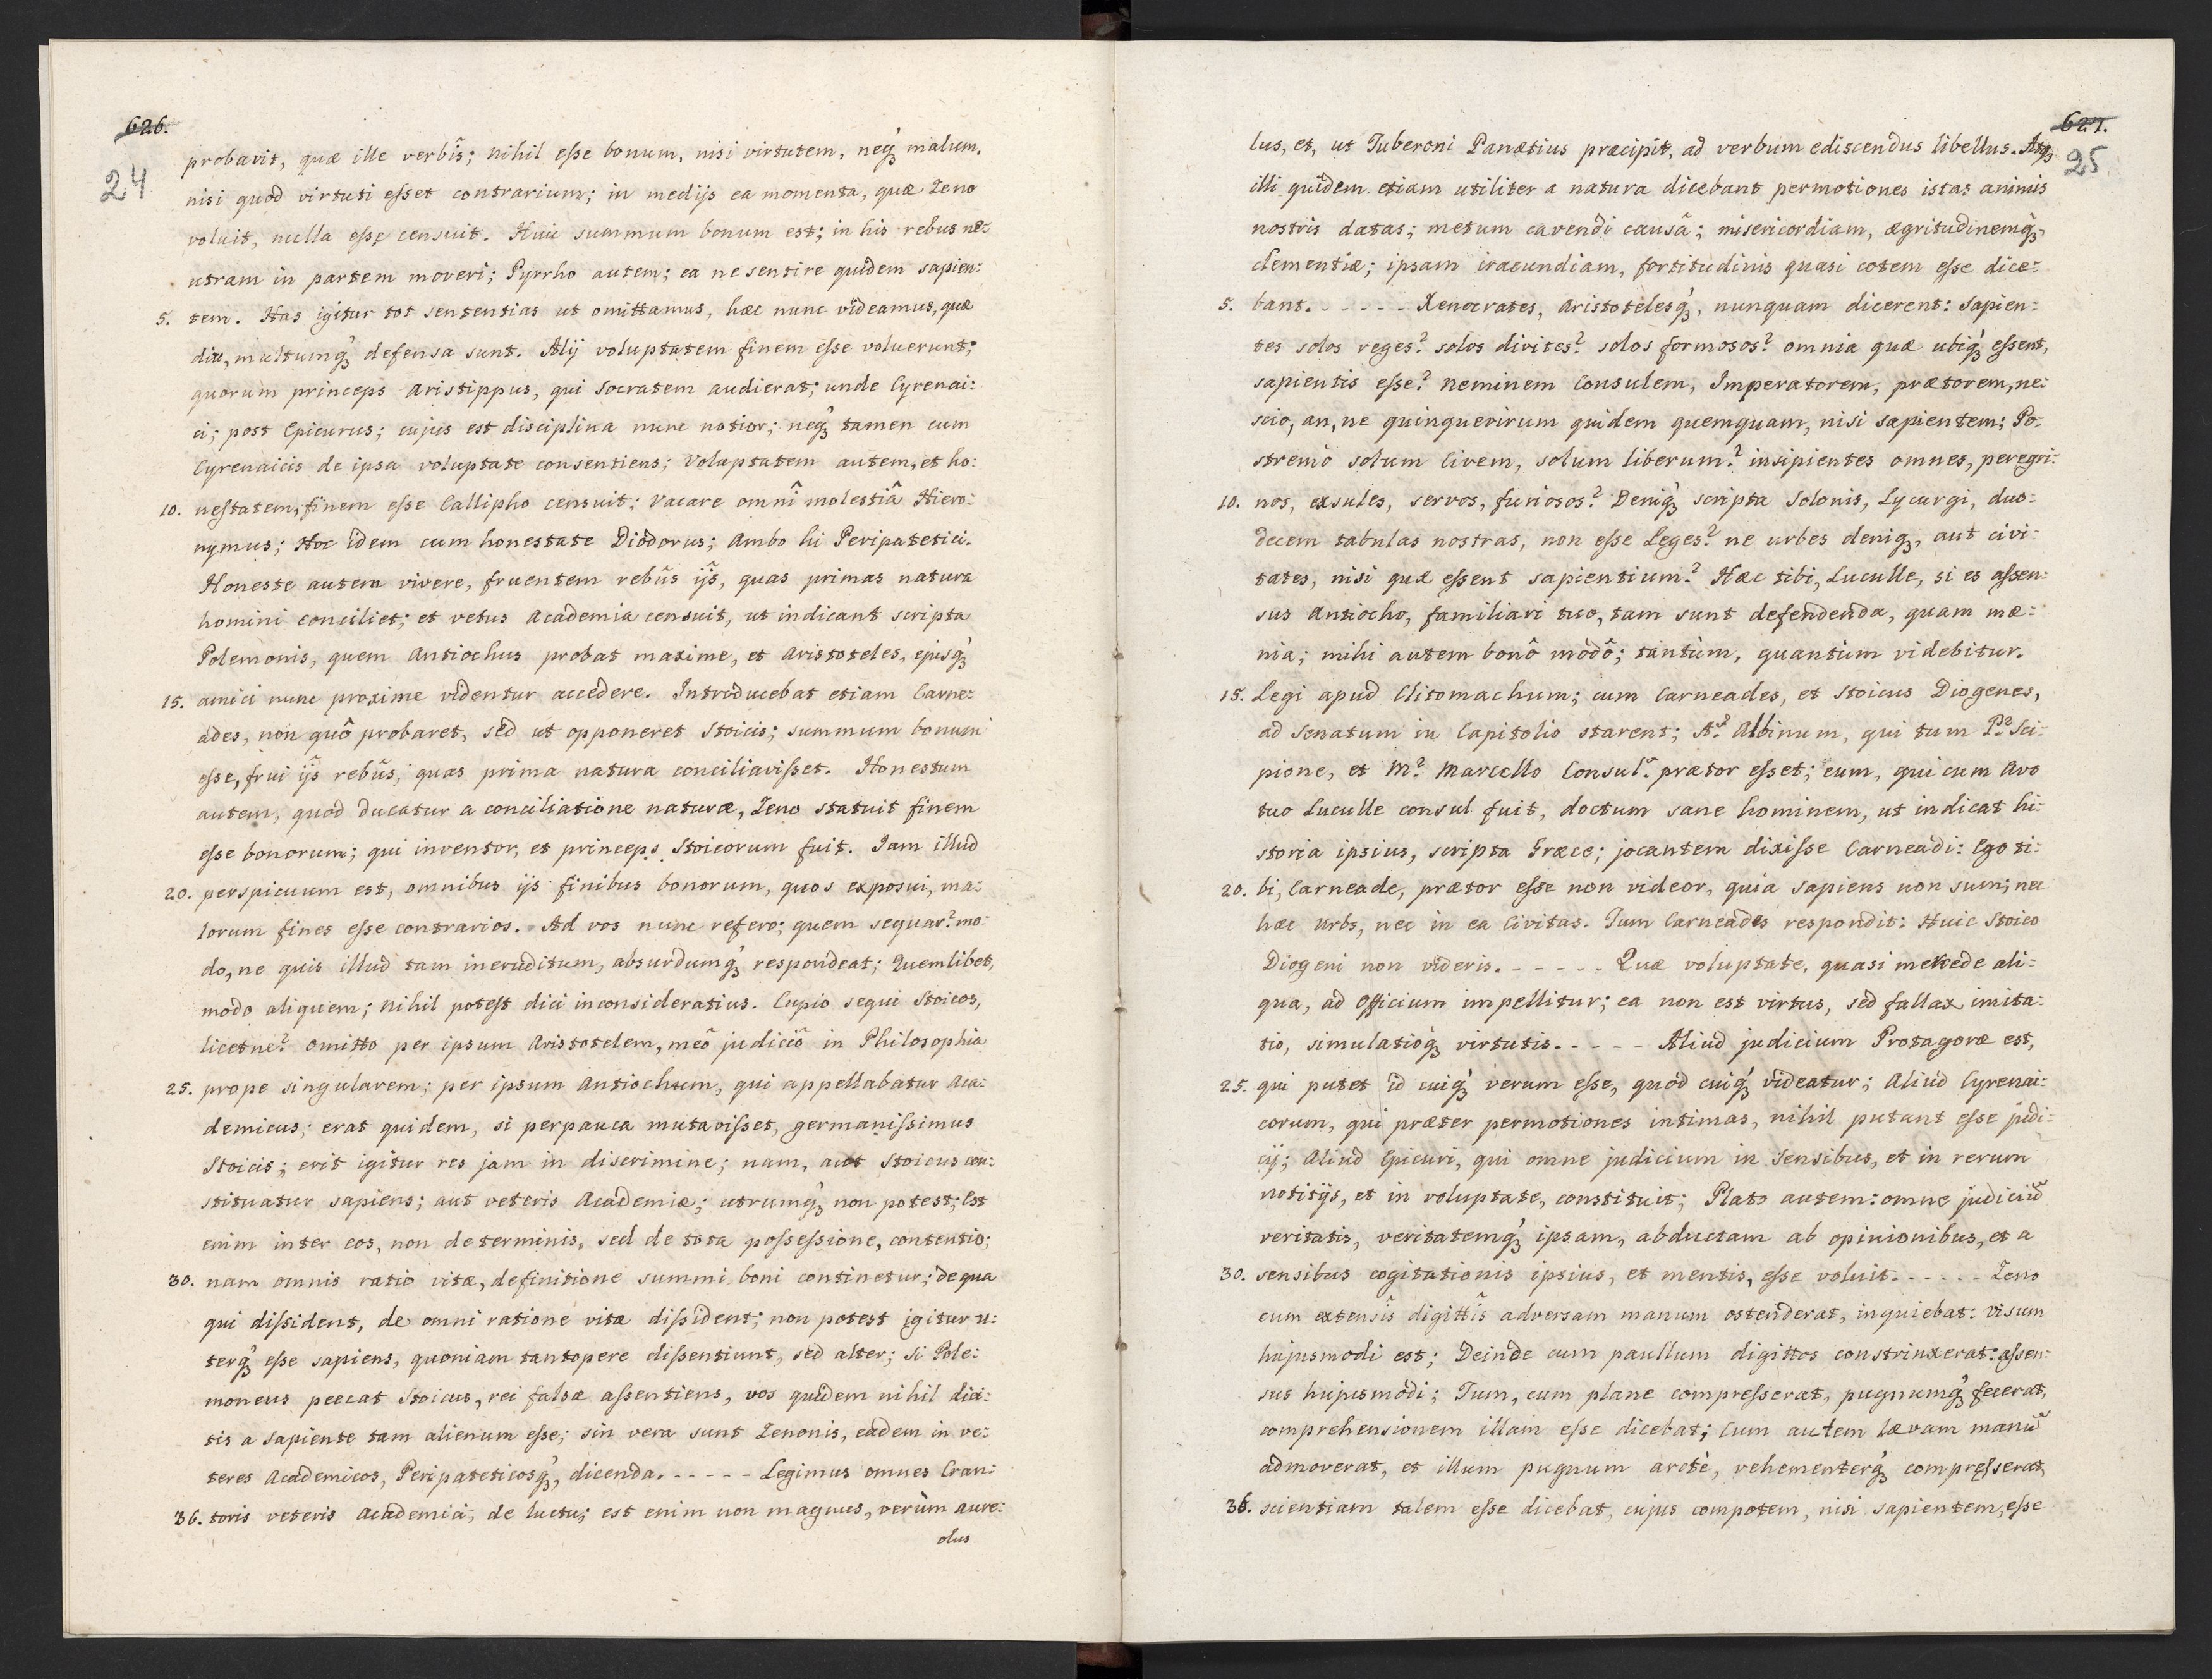 626.
24
probavit, quæ ille verbîs; nihil eſse bonum, nisi virtutem, neq́ꝫ malum,
nisi quod virtuti eſset contrarium; in medijs ea momenta, quæ Zeno
voluit, nulla eſse censuit. Huic summum bonum est; in his rebus ne:
utram in partem moveri; Pyrrho autem; ea ne sentire quidem sapien:
5. tem. Has igitur tot sententias ut omittamus, hæc nunc videamus, quæ
diu, multumq́ꝫ defensa sunt. Alij voluptatem finem eſse voluerunt;
quorum princeps Aristippus, qui Socratem audierat; unde Cyrenai:
ci; post Epicurus; cujus est disciplina nunc notior; neq́ꝫ tamen cum
Cyrenaicis de ipsa voluptate consentiens; Voluptatem autem, et ho:
10. neſtatem, finem eſse Callipho censuit; Vacare omnî molestiâ Hiero:
nymus; Hoc idem cum honestate Diodorus; Ambo hi Peripatetici.
Honeste autem vivere, fruentem rebûs ijŝ, quas primas natura
homini conciliet; et vetus Academia censuit, ut indicant scripta
Polemonis, quem Antiochus probat maxime, et Aristoteles, ejusq́ꝫ
15. amici nunc proxime videntur accedere. Introducebat etiam Carne:
ades, non quô probaret, sed ut opponeret Stoicis; summum bonum
eſse, frui ijŝ rebûs, quas prima natura conciliaviſset. Honestum
autem, quod ducatur a conciliatione naturæ, Zeno statuit finem
eſse bonorum; qui inventor, et princeps Stoicorum fuit. Jam illud
20. perspicuum est, omnibus ijs finibus bonorum, quos exposui, ma:
lorum fines eſse contrarios. Ad vos nunc refero; quem sequar? mo:
do, ne quis illud tam ineruditum, absurdumq́ꝫ respondeat; Quemlibet,
modo aliquem; nihil poteſt dici inconsideratius. Cupio sequi Stoicos,
licetne? omitto per ipsum Aristotelem, meô judiciô in Philosophia
25. prope singularem; per ipsum Antiochum, qui appellabatur Aca:
demicus; erat quidem, si perpauca mutaviſset, germaniſsimus
Stoicis; erit igitur res jam in discrimine; nam, aut Stoicus con:
stituatur sapiens; aut veteris Academiæ; utrumq́ꝫ non potest; Est
enim inter eos, non de terminis, sed de tota poſseſsione, contentio;
30. nam omnis ratio vitæ, definitione summi boni continetur; de qua
qui diſsident, de omni ratione vitæ diſsident; non potest igitur u:
terq́ꝫ eſse sapiens, quoniam tantopere diſsentiunt, sed alter; si Pole:
moneus peccat Stoicus, rei falsæ aſsentiens, vos quidem nihil dici:
tis a sapiente tam alienum eſse; sin vera sunt Zenonis, eadem in ve:
teres Academicos, Peripateticosq́ꝫ, dicenda. - - - - - Legimus omnes Cran:
36. toris veteris Academici; de luctu; est enim non magnus, verùm aure:
olus
627.
25
lus, et, ut Tuberoni Panætius præcipit, ad verbum ediscendus libellus. Atqꝫ
illi quidem etiam utiliter a natura dicebant permotiones istas animis
nostris datas; metum cavendi causâ; misericordiam, ægritudinemq́ꝫ,
clementiæ; ipsam iracundiam, fortitudinis quasi cotem eſse dice:
5. bant. - - - - - Xenocrates, Aristotelesq́ꝫ, nunquam dicerent: Sapien:
tes solos reges? solos divites? solos formosos? omnia quæ ubiq́ꝫ eſsent,
sapientis eſse? neminem Consulem, Imperatorem, prætorem, ne:
scio, an, ne quinquevirum quidem quemquam, nisi sapientem; Po:
stremò solum Civem, solum liberum? insipientes omnes, peregri:
10. nos, exsules, servos, furiosos? Deniq́ꝫ scripta Solonis, Lycurgi, duo:
decem tabulas nostras, non eſse Leges? ne urbes deniqꝫ, aut civi:
tates, nisi quæ eſsent sapientium? Hæc tibi, Luculle, si es aſsen:
sus Antiocho, familiari tuo, tam sunt defendenda, quam mæ:
nia; mihi autem bonô modô; tantùm, quantùm videbitur.
15. Legi apud Clitomachum; cum Carneades, et Stoicus Diogenes,
ad Senatum in Capitolio starent; A. Albinum, qui tum P. Sci:
pione, et M. Marcello Consul. prætor eſset; eum, qui cum Avo
tuo Luculle consul fuit, doctum sane hominem, ut indicat hi:
storia ipsius, scripta Græce; jocantem dixiſse Carneadi: Ego ti:
20. bi, Carneade, prætor eſse non videor, quia sapiens non sum; nec
hæc Urbs, nec in ea Civitas. Tum Carneades respondit: Huic Stoico
Diogeni non videris. - - - - - Quæ voluptate, quasi mercede ali:
qua, ad Officium impellitur; ea non est virtus, sed fallax imita:
tio, simulatioq́ꝫ virtutis. - - - - - Aliud judicium Protagoræ est,
25. qui putet id cuiq́ꝫ verum eſse, quod cuiq́ꝫ videatur; Aliud Cyrenai:
corum, qui præter permotiones intimas, nihil putant eſse judi:
cij; Aliud Epicuri, qui omne judicium in sensibus, et in rerum
notitijs, et in voluptate, constituit; Plato autem: omne judiciũ
veritatis, veritatemq́ꝫ ipsam, abductam ab opinionibus, et a
30. sensibus cogitationis ipsius, et mentis, eſse voluit. - - - - - Zeno
cum extensîs digittîs adversam manum ostenderat, inquiebat: Visum
hujusmodi est; Deinde cum paullum digittos constrinxerat: aſsen:
sus hujusmodi; Tum, cum plane compreſserat, pugnumq́ꝫ fecerat,
comprehensionem illam eſse dicebat; Cum autem lævam manũ
admoverat, et illum pugnum arctè, vehementerq́ꝫ compreſserat,
36. scientiam talem eſse dicebat, cujus compotem, nisi sapientem, eſse